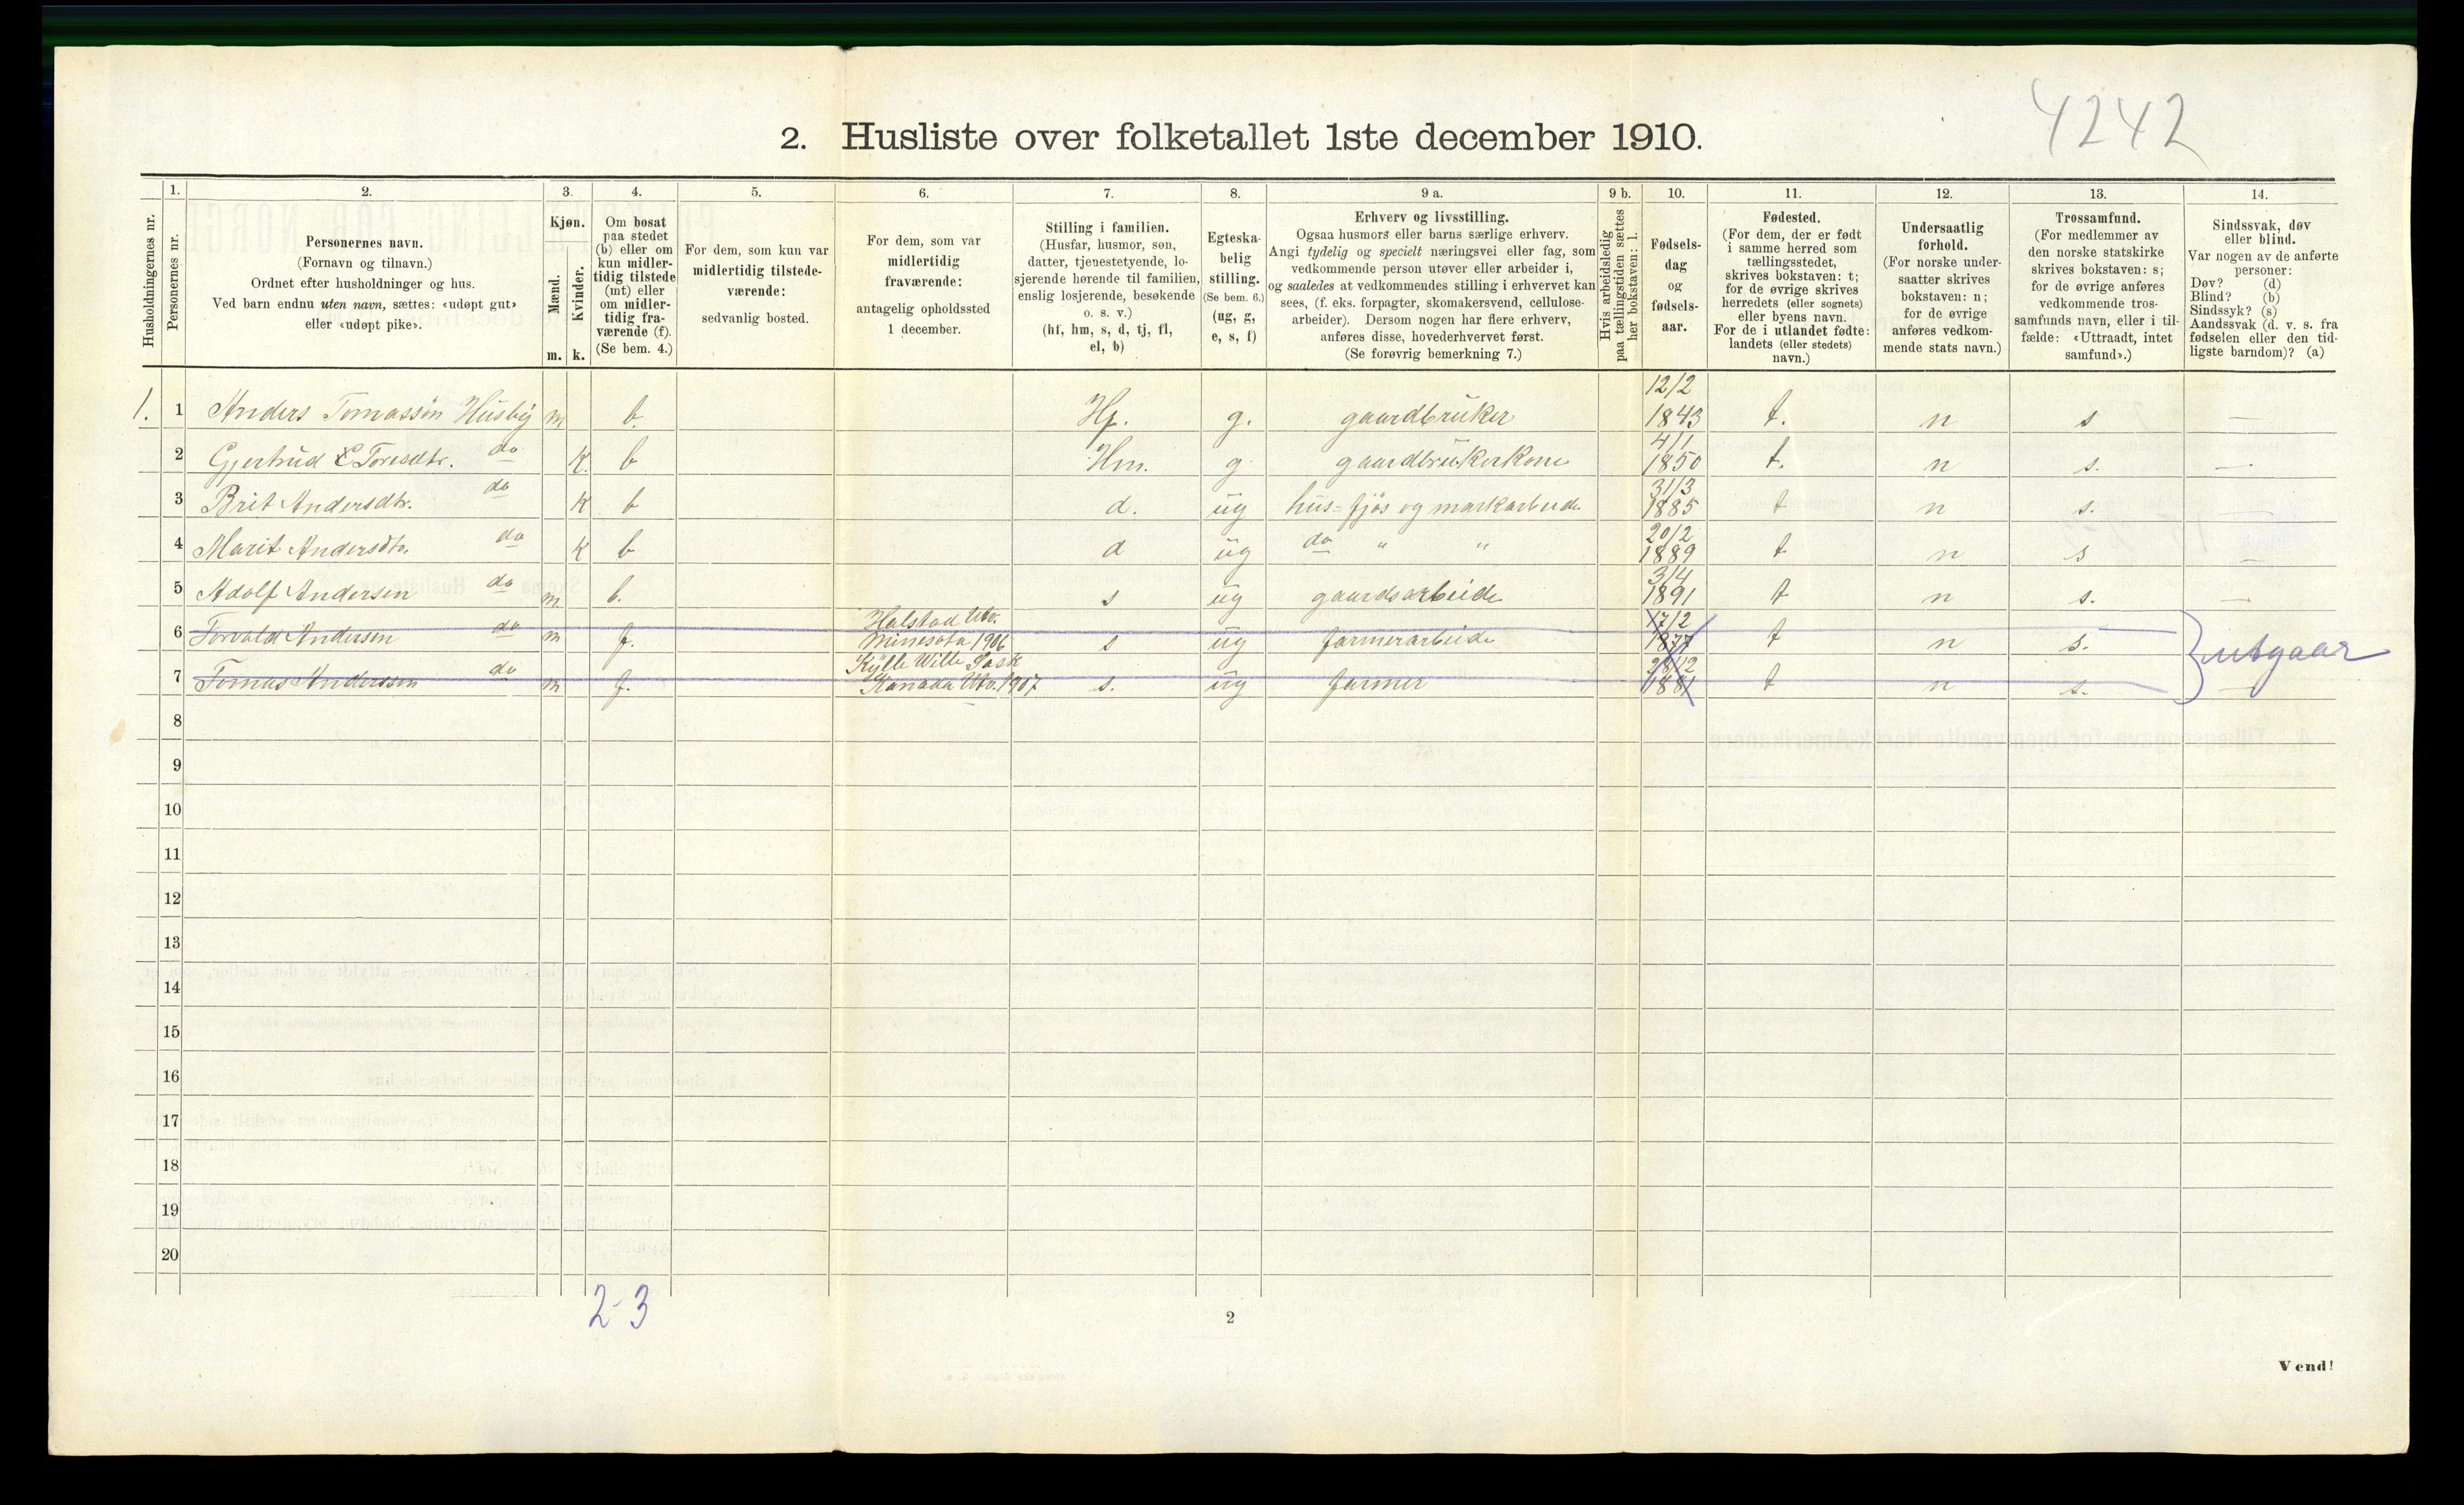 4242
2. Husliste over folketallet 1ste december 1910.
Husholdningernes nr.
1. Personernes nr.
2. Personernes navn.
(Fornavn og tilnavn.)
Ordnet efter husholdninger og hus.
Ved barn endnu uten navn, sættes: «udøpt gut»
eller «udøpt pike».
3. Kjøn.
Mænd. m.
Kvinder. k.
4. Om bosat
paa stedet
(b) eller om
kun midler-
tidig tilstede
(mt) eller
om midler-
tidig fra-
værende (f).
(Se bem. 4.)
5. For dem, som kun var
midlertidig tilstede-
værende:
sedvanlig bosted.
6. For dem, som var
midlertidig
fraværende:
antagelig opholdssted
1 december.
7. Stilling i familien.
(Husfar, husmor, søn,
datter, tjenestetyende, lo-
sjerende hørende til familien,
enslig losjerende, besøkende
o. s. v.)
(hf, hm, s, d, tj, fl,
el, b)
8. Egteska-
belig
stilling.
(Se bem. 6.)
(ug, g,
e, s, f)
9 a. Erhverv og livsstilling.
Ogsaa husmors eller barns særlige erhverv.
Angi tydelig og specielt næringsvei eller fag, som
vedkommende person utøver eller arbeider i,
og saaledes at vedkommendes stilling i erhvervet kan
sees, (f. eks. forpagter, skomakersvend, cellulose-
arbeider). Dersom nogen har flere erhverv,
anføres disse, hovederhvervet først.
(Se forøvrig bemerkning 7.)
9 b. Hvis arbeidsledig
paa tællingstiden sættes
her bokstaven: l.
10. Fødsels-
dag
og
fødsels-
aar.
11. Fødested.
(For dem, der er født
i samme herred som
tællingsstedet,
skrives bokstaven: t;
for de øvrige skrives
herredets (eller sognets)
eller byens navn.
For de i utlandet fødte:
landets (eller stedets)
navn.)
12. Undersaatlig
forhold.
(For norske under-
saatter skrives
bokstaven: n;
for de øvrige
anføres vedkom-
mende stats navn.)
13. Trossamfund.
(For medlemmer av
den norske statskirke
skrives bokstaven: s;
for de øvrige anføres
vedkommende tros-
samfunds navn, eller i til-
fælde: «Uttraadt, intet
samfund».)
14. Sindssvak, døv
eller blind.
Var nogen av de anførte
personer:
Døv? (d)
Blind? (b)
Sindssyk? (s)
Aandssvak (d. v. s. fra
fødselen eller den tid-
ligste barndom)? (a)
1. 1 Anders Tomassen Husby m b. Hf. g. gaardbruker 12/2 1843 t. n s —
2 Gjertrud Toresdtr. do k b Hm. g gaardbrukerkone 4/1 1850 t. n s. —
3 Brit Andersdtr. do k b d. ug hus- fjøs og markarbeide 31/3 1885 t n s. —
4 Marit Andersdtr. do k b d ug do " " 20/2 1889 t n s —
5 Adolf Andersen do m b. s ug gaardsarbeide 3/4 1891 t n s. —
6 Torvald Andersen do m f. Halstad Utv. Minesota 1906 s ug farmerarbeide 17/2 1877 t n s.
7 Tomas Anderssen do m f. Kylle Wille Sask Kanada Utv. 1907 s. ug farmer 28/12 1881 t n s. —
utgaar
8
9
10
11
12
13
14
15
16
17
18
19
20
2-3
2
Vend!